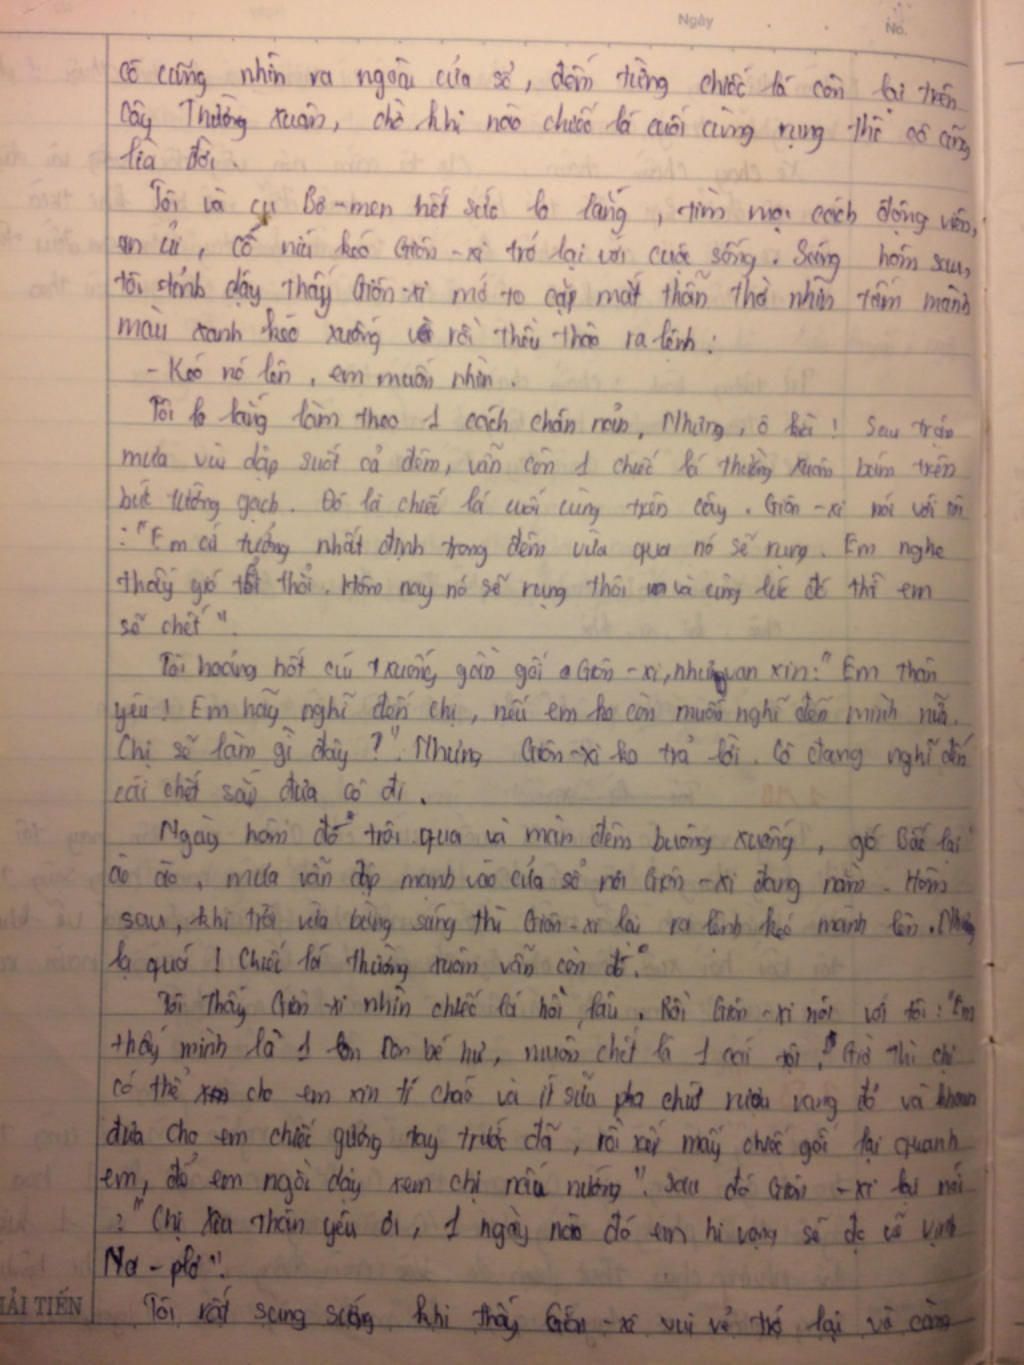 Ngày No.
cô cũng nhìn ra ngoài cửa sổ, đếm từng chiếc lá còn lại trên
cây Thường xuân, chờ khi nào chiếc lá cuối cùng rụng thì cô cũng
lìa đời.
Tôi và cụ Bơ-men hết sức lo lắng, tìm mọi cách động viên,
an ủi, cố níu kéo Giôn-xi trở lại với cuộc sống. Sáng hôm sau,
tôi tỉnh dậy thấy Giôn-xi mở to cặp mắt thẫn thờ nhìn tấm mành
màu xanh kéo xuống rồi thều thào ra lệnh:
- Kéo nó lên, em muốn nhìn.
Tôi lo lắng làm theo 1 cách chán nản. Nhưng, ô kìa! Sau trận
mưa vùi dập suốt cả đêm, vẫn còn 1 chiếc lá thường xuân bám trên
bức tường gạch. Đó là chiếc lá cuối cùng trên cây. Giôn-xi nói với tôi
: "Em cứ tưởng nhất định trong đêm vừa qua nó sẽ rụng. Em nghe
thấy gió thổi. Hôm nay nó sẽ rụng thôi và cùng lúc đó thì em
sẽ chết".
Tôi hoảng hốt cúi xuống gần gối Giôn-xi, nhưng van xin: "Em thân
yêu! Em hãy nghĩ đến chị, nếu em ko còn muốn nghĩ đến mình nữa.
Chị sẽ làm gì đây?". Nhưng Giôn-xi ko trả lời. Cô đang nghĩ đến
cái chết sắp đưa cô đi.
Ngày hôm đó trôi qua và màn đêm buông xuống, gió Bấc lại
ào ào, mưa vẫn đập mạnh vào cửa sổ nơi Giôn-xi đang nằm. Hôm
sau, khi trời vừa bừng sáng thì Giôn-xi lại ra lệnh kéo mành lên. Nhưng
lạ quá! Chiếc lá thường xuân vẫn còn đó.
Tôi thấy Giôn-xi nhìn chiếc lá hồi lâu. Rồi Giôn-xi nói với tôi: "Em
thấy mình là 1 con bé hư, muốn chết là 1 cái tội. Giờ thì chị
có thể cho em xin tí cháo và ít sữa pha chút rượu vang đỏ và khoan
đưa cho em chiếc gương tay trước đã, rồi xếp mấy chiếc gối lại quanh
em, để em ngồi dậy xem chị nấu nướng". Sau đó Giôn-xi lại nói
: "Chị Xiu thân yêu ơi, 1 ngày nào đó em hi vọng sẽ đc vẽ vịnh
Na-plơ".
Tôi rất sung sướng khi thấy Giôn-xi vui vẻ trở lại và càng
HẢI TIẾN